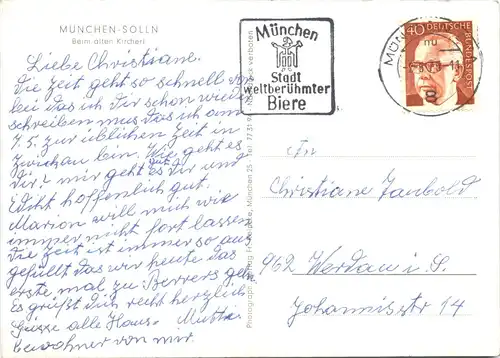 MÜNCHEN-SOLLN
Beim alten Kircherl
Liebe Christiane.
Die Zeit geht so schnell vor
bei das ich Dir schon wieder
schreiben mus das ich am
7.5. zur üblichen Zeit in
Zwickau bin. Wie geht es
Dir? mir geht es gut Dir und
Edit hoffenlich gut.
Marion will mich wie
immer nicht fort lassen.
Die Zeit ist immer so aus
gefüllt das wir heute das
erste mal zu gehn.
Es grüßt dich recht herzlich
Grüsse alle Haus-
bewohner von mir.
München
Stadt
weltberühmter
Biere
MÜN
8
40
DEUTSCHE BUNDESPOST
verboten
München 25
An
Christiane
962 Werdau i. S.
Johannisstr 14